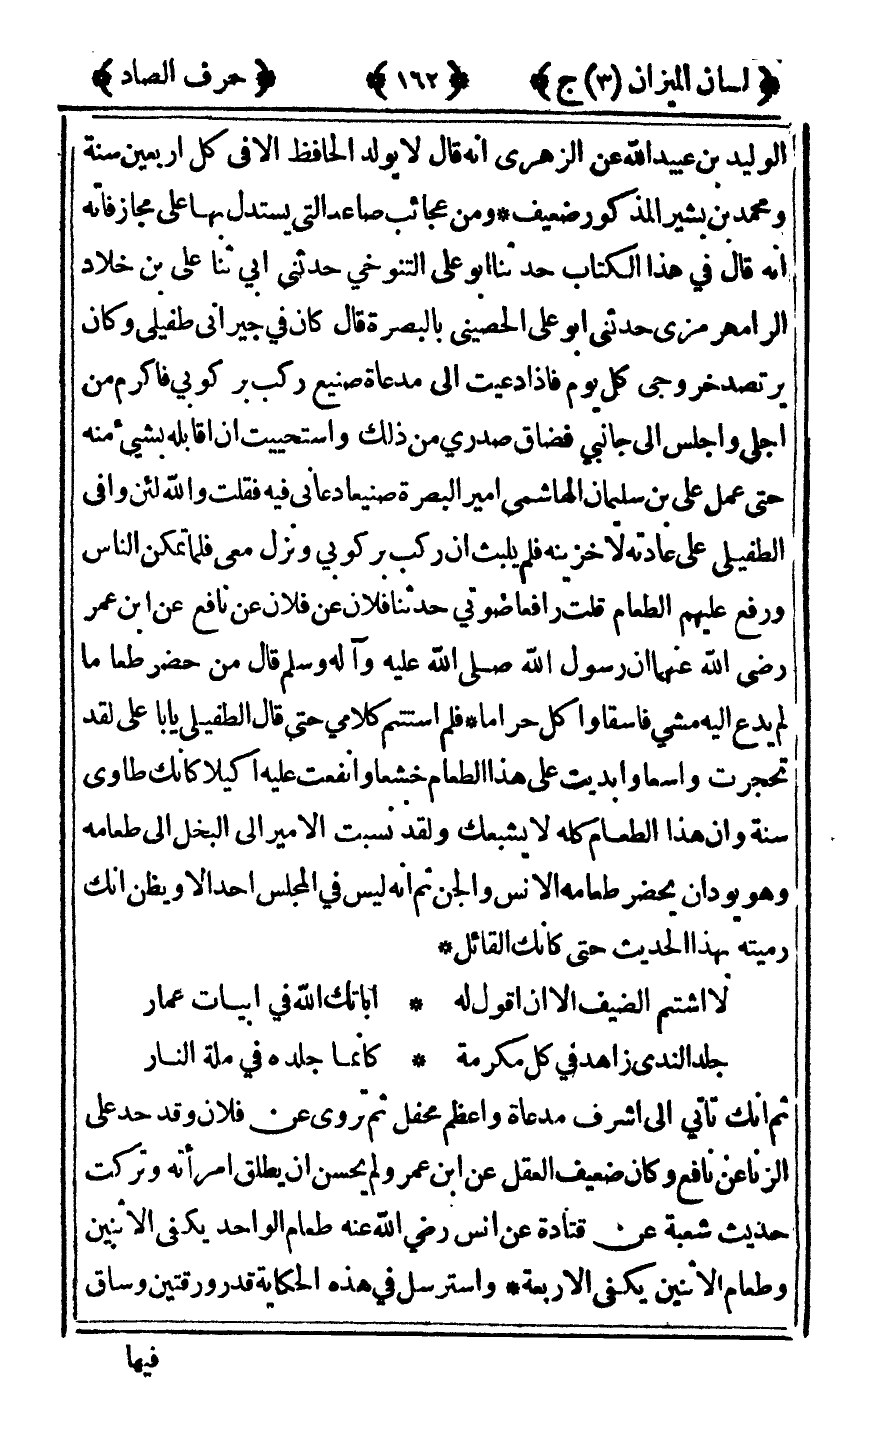 ﴿ لسان الميزان (٣) ج ﴾ ﴿ ١٦٢ ﴾ ﴿ حرف الصاد ﴾
الوليد بن عبيدالله عن الزهرى انه قال لا يولد الحافظ الا فى كل اربعين سنة
ومحمد بن بشير المذكور ضعيف * ومن عجائب صاعد التى يستدل بها على مجازفاته
انه قال في هذا الكتاب حدثنا ابو على التنوخي حدثني ابي ثنا على بن خلاد
الرامهرمزى حدثنى ابو على الحصينى بالبصرة قال كان في جيرانى طفيلى وكان
يرتصد خروجى كل يوم فاذا دعيت الى مدعاة صنيع ركب بركوبي فاكرم من
اجلى واجلس الى جانبي فضاق صدري من ذلك واستحييت ان اقابله بشيئ منه
حتى عمل على بن سليمان الهاشمى امير البصرة صنيعا دعانى فيه فقلت والله لئن وافى
الطفيلى على عادته لاخزينه فلم يلبث ان ركب بركوبي ونزل معى فلما تمكن الناس
ورفع عليهم الطعام قلت رافعا صوتي حدثنا فلان عن فلان عن نافع عن ابن عمر
رضى الله عنهما ان رسول الله صلى الله عليه وآله وسلم قال من حضر طعا ما
لم يدع اليه مشي فاسقا واكل حراما * فلم استتم كلامي حتى قال الطفيلى يابا على لقد
تحجرت واسعا وابديت على هذا الطعام خشعا وانفعت عليه اكيلا كانك طاوى
سنة وان هذا الطعام كله لا يشبعك ولقد نسبت الامير الى البخل الى طعامه
وهو يود ان يحضر طعامه الانس والجن ثم انه ليس في المجلس احد الا ويظن انك
رميته بهذا الحديث حتى كانك القائل *
لا اشتم الضيف الا ان اقول له * اباتك الله في ابيات عمار
جلد الندى زاهد في كل مكرمة * كأنما جلده في ملة النار
ثم انك تاتي الى اشرف مدعاة واعظم محفل ثم تروى عن فلان وقد حد على
الزنا عن نافع وكان ضعيف العقل عن ابن عمر ولم يحسن ان يطلق امرأته وتركت
حديث شعبة عن قتادة عن انس رضي الله عنه طعام الواحد يكفى الاثنين
وطعام الاثنين يكفى الاربعة * واسترسل في هذه الحكاية قدر ورقتين وساق
فيها